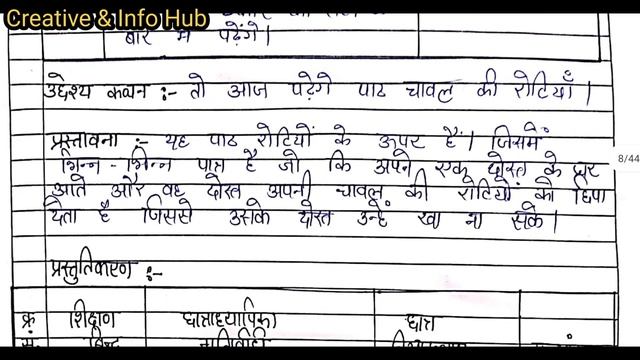 Creative & Info Hub
बारे में पढ़ेंगे।
उद्देश्य कथन :- तो आज पढ़ेगे पाठ चावल की रोटियाँ।
प्रस्तावना :- यह पाठ रोटियों के ऊपर हैं। जिसमें
भिन्न-भिन्न पात्र है जो कि अपने एक दोस्त के घर
आते और वह दोस्त अपनी चावल की रोटियों को छिपा
देता है जिससे उसके दोस्त उन्हें खा ना सके।
8/44
प्रस्तुतिकरण :-
क्र शिक्षण छात्राध्यापिका छात्र
सं. बिन्दु